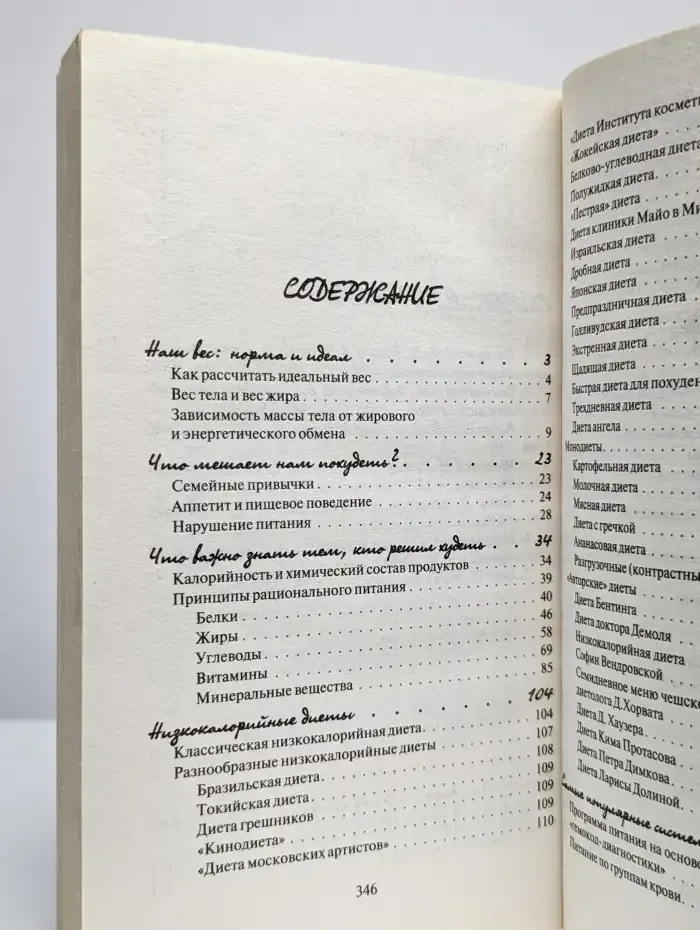 СОДЕРЖАНИЕ
Наш вес: норма и идеал . . . . . . . . . . 3
Как рассчитать идеальный вес . . . . . . . . . . 4
Вес тела и вес жира . . . . . . . . . . 7
Зависимость массы тела от жирового
и энергетического обмена . . . . . . . . . . 9
Что мешает нам похудеть? . . . . . . . 23
Семейные привычки . . . . . . . . . . 23
Аппетит и пищевое поведение . . . . . . . . . . 24
Нарушение питания . . . . . . . . . . 28
Что важно знать тем, кто решил худеть . . 34
Калорийность и химический состав продуктов . . . . . 34
Принципы рационального питания . . . . . . . . . . 39
Белки . . . . . . . . . . 40
Жиры . . . . . . . . . . 46
Углеводы . . . . . . . . . . 58
Витамины . . . . . . . . . . 69
Минеральные вещества . . . . . . . . . . 85
Низкокалорийные диеты . . . . . . . . 104
Классическая низкокалорийная диета . . . . . . . . 104
Разнообразные низкокалорийные диеты . . . . . . . 107
Бразильская диета . . . . . . . . . . 108
Токийская диета . . . . . . . . . . 109
Диета грешников . . . . . . . . . . 109
«Кинодиета» . . . . . . . . . . 109
«Диета московских артистов» . . . . . . . . . . 110
346
«Диета Института космет
«Жокейская диета» . . . .
Белково-углеводная диета
Полужидкая диета . . . .
«Пестрая» диета . . . .
Диета клиники Майо в Ми
Израильская диета . . . .
Дробная диета . . . .
Японская диета . . . .
Предпраздничная диета . . . .
Голливудская диета . . . .
Экстренная диета . . . .
Щадящая диета . . . .
Быстрая диета для похуден
Трехдневная диета . . . .
Диета ангела . . . .
Монодиеты . . . .
Картофельная диета . . . .
Молочная диета . . . .
Мясная диета . . . .
Диета с гречкой . . . .
Ананасовая диета . . . .
Разгрузочные (контрастны
«Авторские» диеты . . . .
Диета Бентинга . . . .
Диета доктора Демоля . . . .
Низкокалорийная диета
Софии Вендровской . . . .
Семидневное меню чешско
диетолога Д.Хорвата . . . .
Диета Д. Хаузера . . . .
Диета Кима Протасова . . . .
Диета Петра Димкова . . . .
Диета Ларисы Долиной . . . .
популярные систем
Программа питания на основе
«гемокод-диагностики» . . . .
Питание по группам крови . . . .